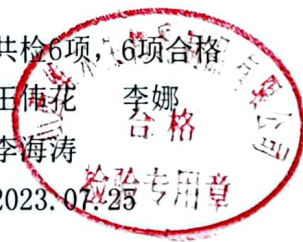 共检6项，6项合格
王伟花 李娜
李海涛
2023.07.25
合格
检验专用章